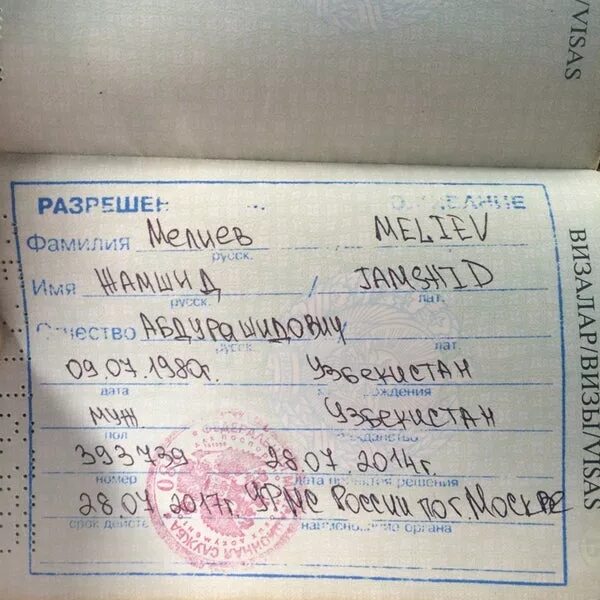 /VISAS
РАЗРЕШЕН
Фамилия Мелиев MELIEV
русск.
Имя ЖАМШИД / JAMSHID
русск. лат.
Отчество АБДУРАШИДОВИЧ /
русск. лат.
09.07.1980г. Узбекистан
дата рождения
муж. Узбекистан
пол гражданство
393739 28.07.2014г.
номер дата принятия решения
28.07.2017г. УФМС России по г. Москве
срок действ наименование органа
ВИЗАЛАР/ВИЗЫ/VISAS